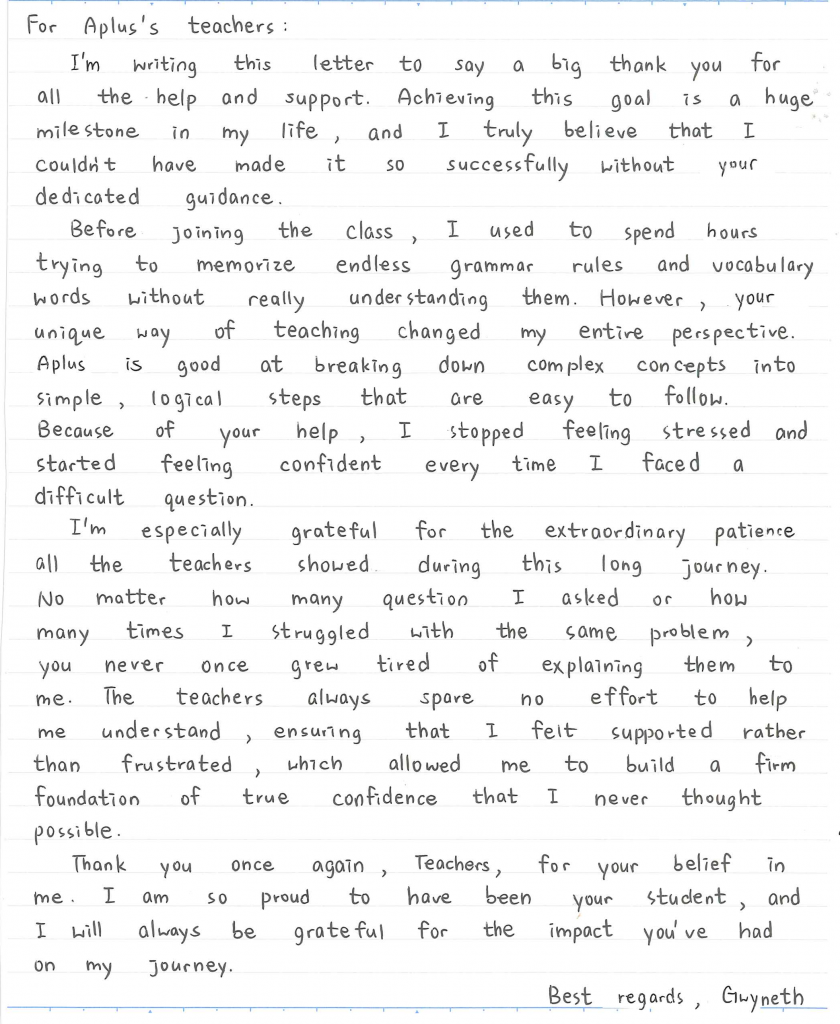 For Aplus's teachers:
I'm writing this letter to say a big thank you for
all the help and support. Achieving this goal is a huge
milestone in my life, and I truly believe that I
couldn't have made it so successfully without your
dedicated guidance.
Before joining the class, I used to spend hours
trying to memorize endless grammar rules and vocabulary
words without really understanding them. However, your
unique way of teaching changed my entire perspective.
Aplus is good at breaking down complex concepts into
simple, logical steps that are easy to follow.
Because of your help, I stopped feeling stressed and
started feeling confident every time I faced a
difficult question.
I'm especially grateful for the extraordinary patience
all the teachers showed during this long journey.
No matter how many question I asked or how
many times I struggled with the same problem,
you never once grew tired of explaining them to
me. The teachers always spare no effort to help
me understand, ensuring that I felt supported rather
than frustrated, which allowed me to build a firm
foundation of true confidence that I never thought
possible.
Thank you once again, Teachers, for your belief in
me. I am so proud to have been your student, and
I will always be grateful for the impact you've had
on my journey.
Best regards, Gwyneth